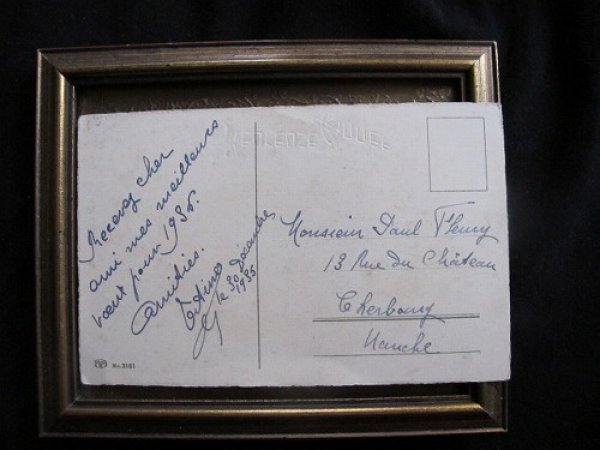 Recevez cher
ami mes meilleurs
vœux pour 1936.
Amitiés.
le 30 Décembre
1935
No. 3161
Monsieur Paul Fleury
13 Rue du Château
Cherbourg
Manche